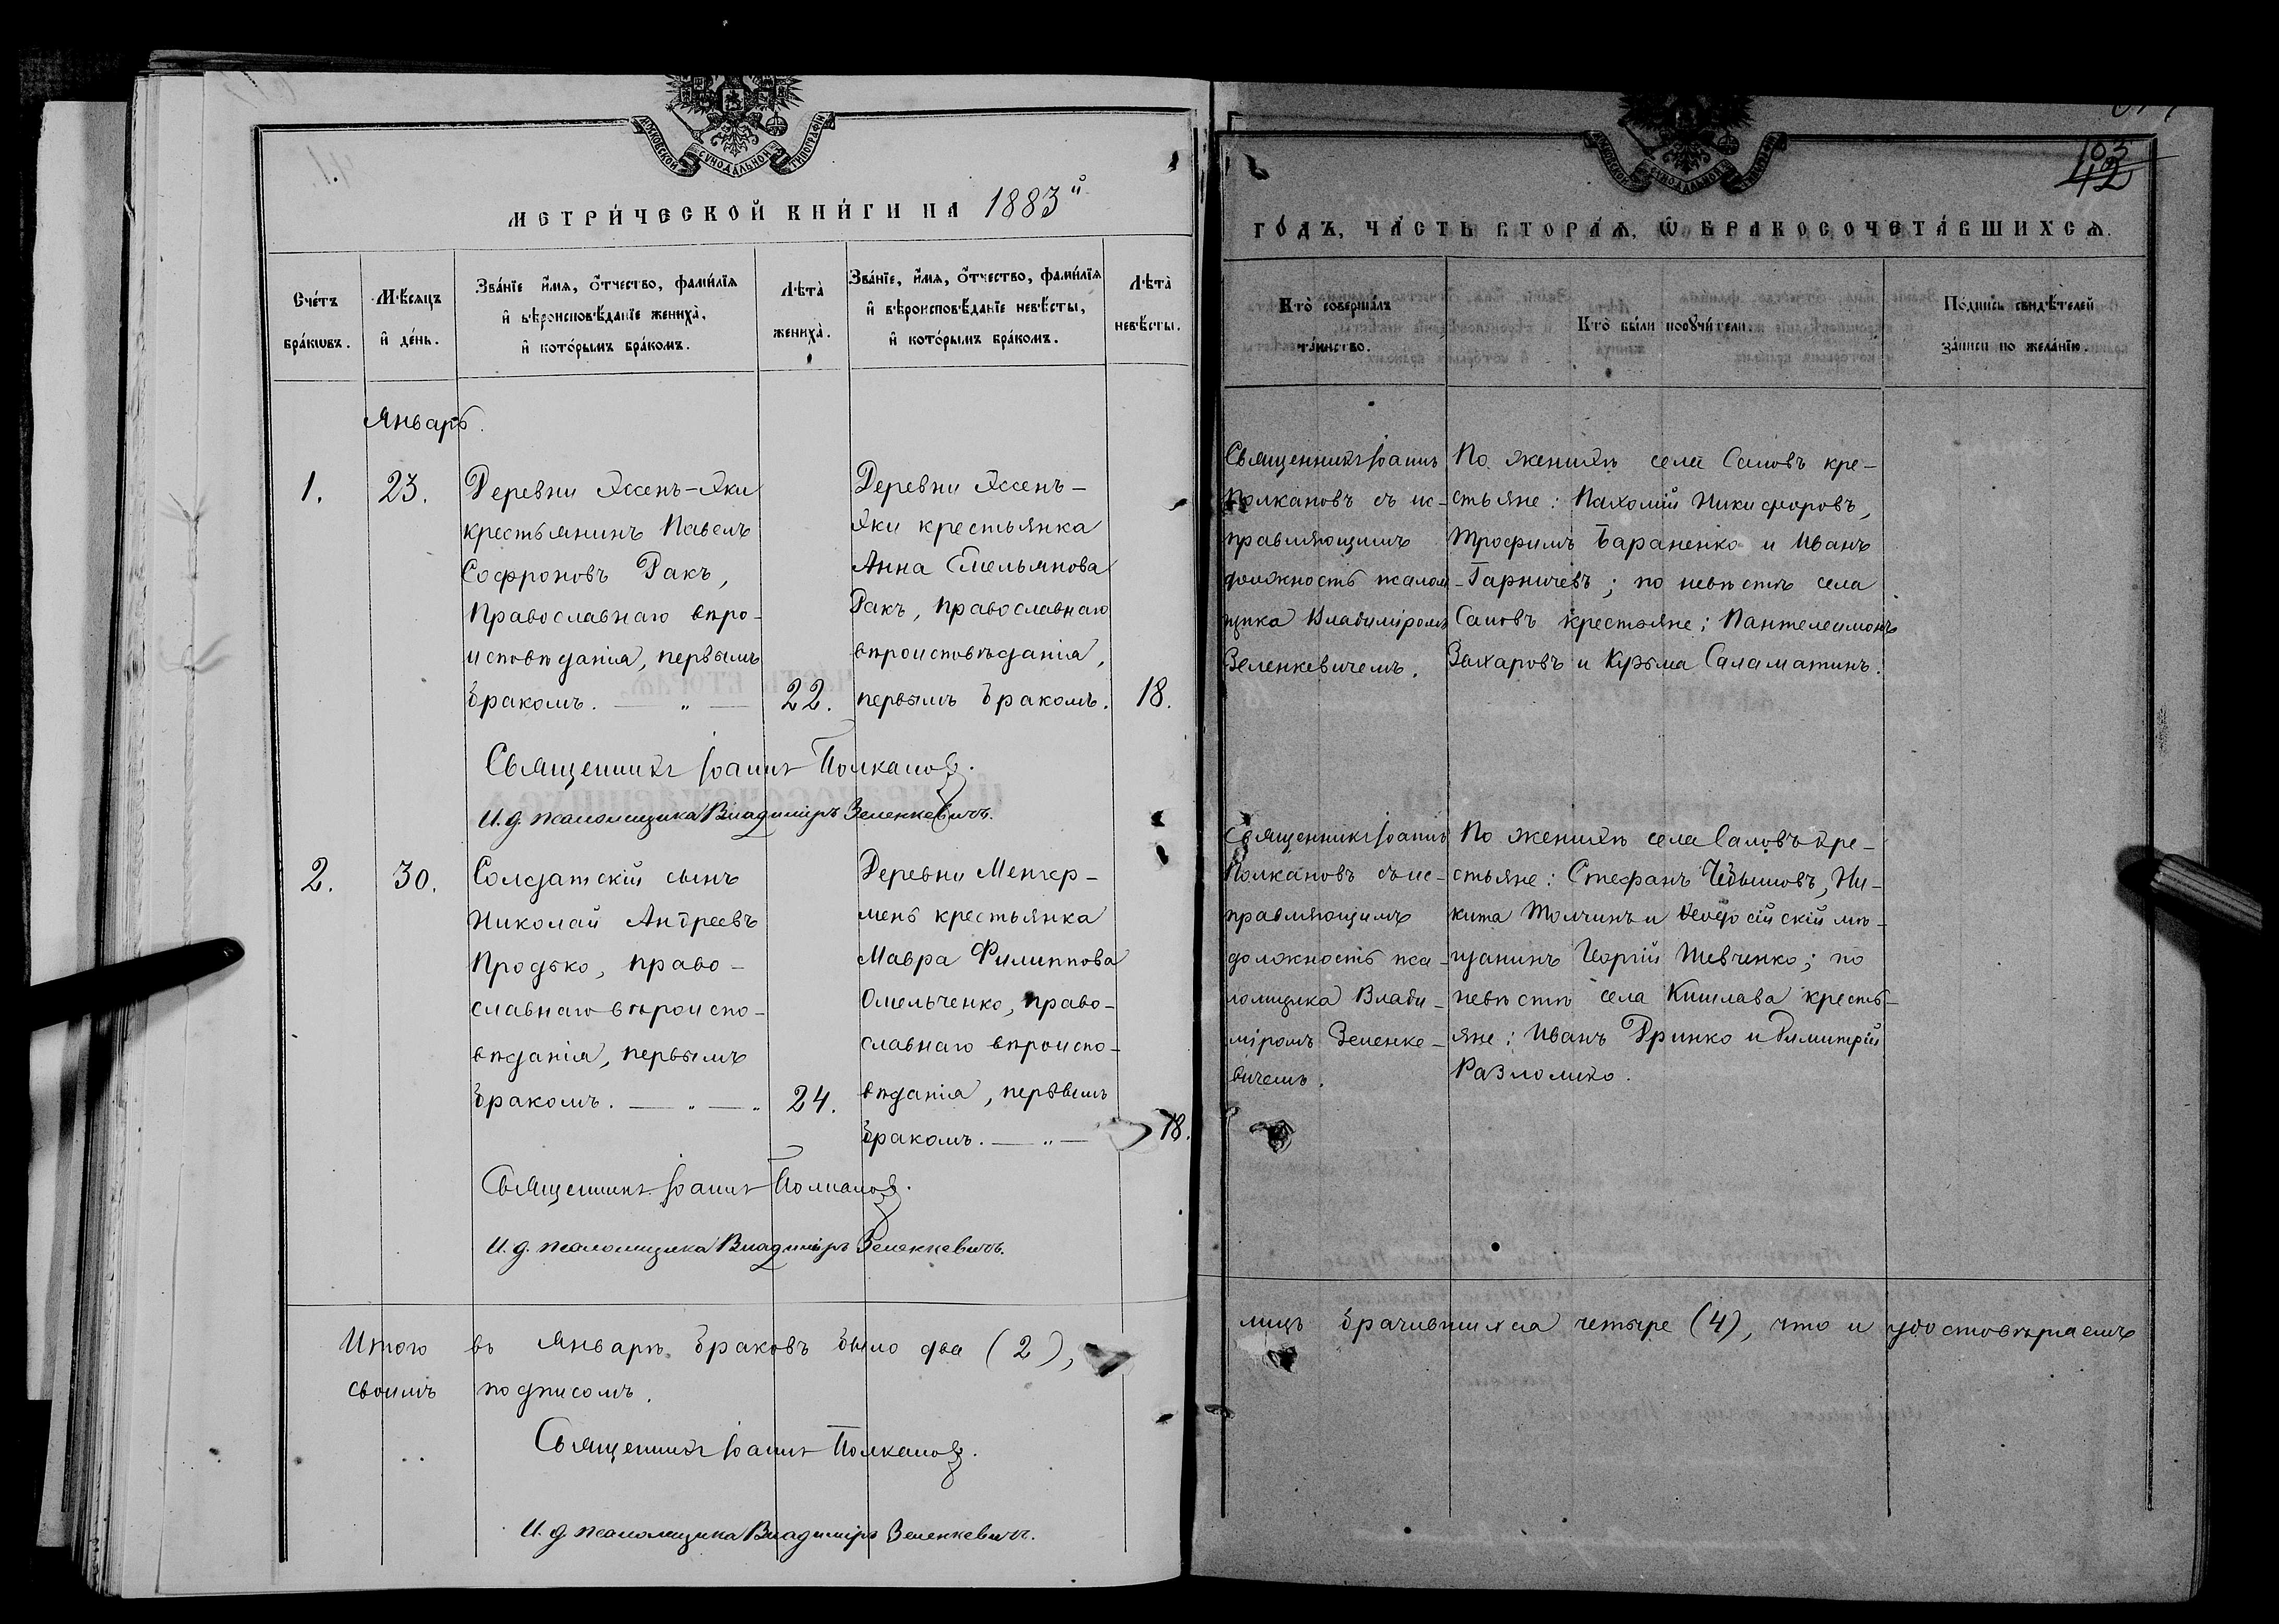 МОСКОВСКОЙ СѴНОДАЛЬНОЙ ТИПОГРАФІИ
МЕТРИ́ЧЕСКОЙ КНИ́ГИ НА 1883й
Сче́тъ бра́кѡвъ.
Мѣ́сяцъ и҆ де́нь.
Зва́нїе и҆́мя, ѻ҆́тчество, фами́лїя
и҆ вѣроисповѣ́данїе жениха̀,
и҆ кото́рымъ бра́комъ.
Лѣта̀ жениха̀.
Зва́нїе, и҆́мя, ѻ҆́тчество, фами́лїя
и҆ вѣроисповѣ́данїе невѣ́сты,
и҆ кото́рымъ бра́комъ.
Лѣта̀ невѣ́сты.
Январь.
1.
23.
Деревни Яссенъ-Яки
крестьянинъ Павелъ
Софроновъ Ракъ,
Православнаго вѣро-
исповѣданія, первымъ
бракомъ. — „ —
22.
Деревни Яссенъ-
Яки крестьянка
Анна Емельянова
Ракъ, православнаго
вѣроисповѣданія,
первымъ бракомъ.
18.
Священникъ Іоаннъ Полкановъ.
И. д. псаломщика Владиміръ Зеленкевичъ.
2.
30.
Солдатскій сынъ
Николай Андреевъ
Продько, право-
славнаго вѣроиспо-
вѣданія, первымъ
бракомъ. — „ — „
24.
Деревни Менгер-
мень крестьянка
Мавра Филиппова
Омельченко, право-
славнаго вѣроиспо-
вѣданія, первымъ
бракомъ. — „ —
18.
Священникъ Іоаннъ Полкановъ.
И. д. псаломщика Владиміръ Зеленкевичъ.
Итого въ Январѣ браковъ было два (2),
своимъ подписомъ.
Священникъ Іоаннъ Полкановъ.
И. д. псаломщика Владиміръ Зеленкевичъ.
МОСКОВСКОЙ СѴНОДАЛЬНОЙ ТИПОГРАФІИ
103
42
ГО́ДЪ, ЧА́СТЬ ВТОРА́Ѧ, Ѡ҆ БРАКОСОЧЕТА́ВШИХСѦ.
Кто̀ соверша́лъ та́инство.
Кто̀ бы́ли поꙋчи́тели.
По́дпись свидѣ́телей за́писи по жела́нїю.
Священникъ Іоаннъ
Полкановъ съ ис-
правляющимъ
должность псалом-
щика Владиміромъ
Зеленкевичемъ.
По женихѣ села Саловъ кре-
стьяне: Пахомій Никифоровъ,
Трофимъ Бараненко и Иванъ
Гарничевъ; по невѣстѣ села
Саловъ крестьяне; Пантелеимонъ
Захаровъ и Кузьма Саламатинъ.
Священникъ Іоаннъ
Полкановъ съ ис-
правляющимъ
должность пса-
ломщика Влади-
міромъ Зеленке-
вичемъ.
По женихѣ села Саловъ кре-
стьяне: Стефанъ Чебышовъ, Ни-
кита Толчинъ и Ѳеодосійскій мѣ-
щанинъ Георгій Шевченко; по
невѣстѣ села Кишлава кресть-
яне: Иванъ Дринко и Димитрій
Разломко.
лицъ брачившихся четыре (4), что и удостовѣряемъ